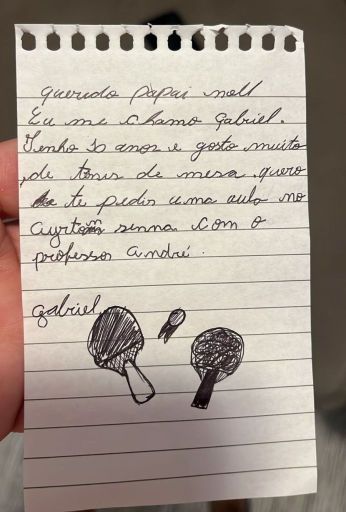 querido papai noll
Eu me chamo Gabriel.
Tenho 10 anos e gosto muito
de tenis de mesa. quero
te pedir uma aula no
ayrtom senna com o
professor andré.
gabriel